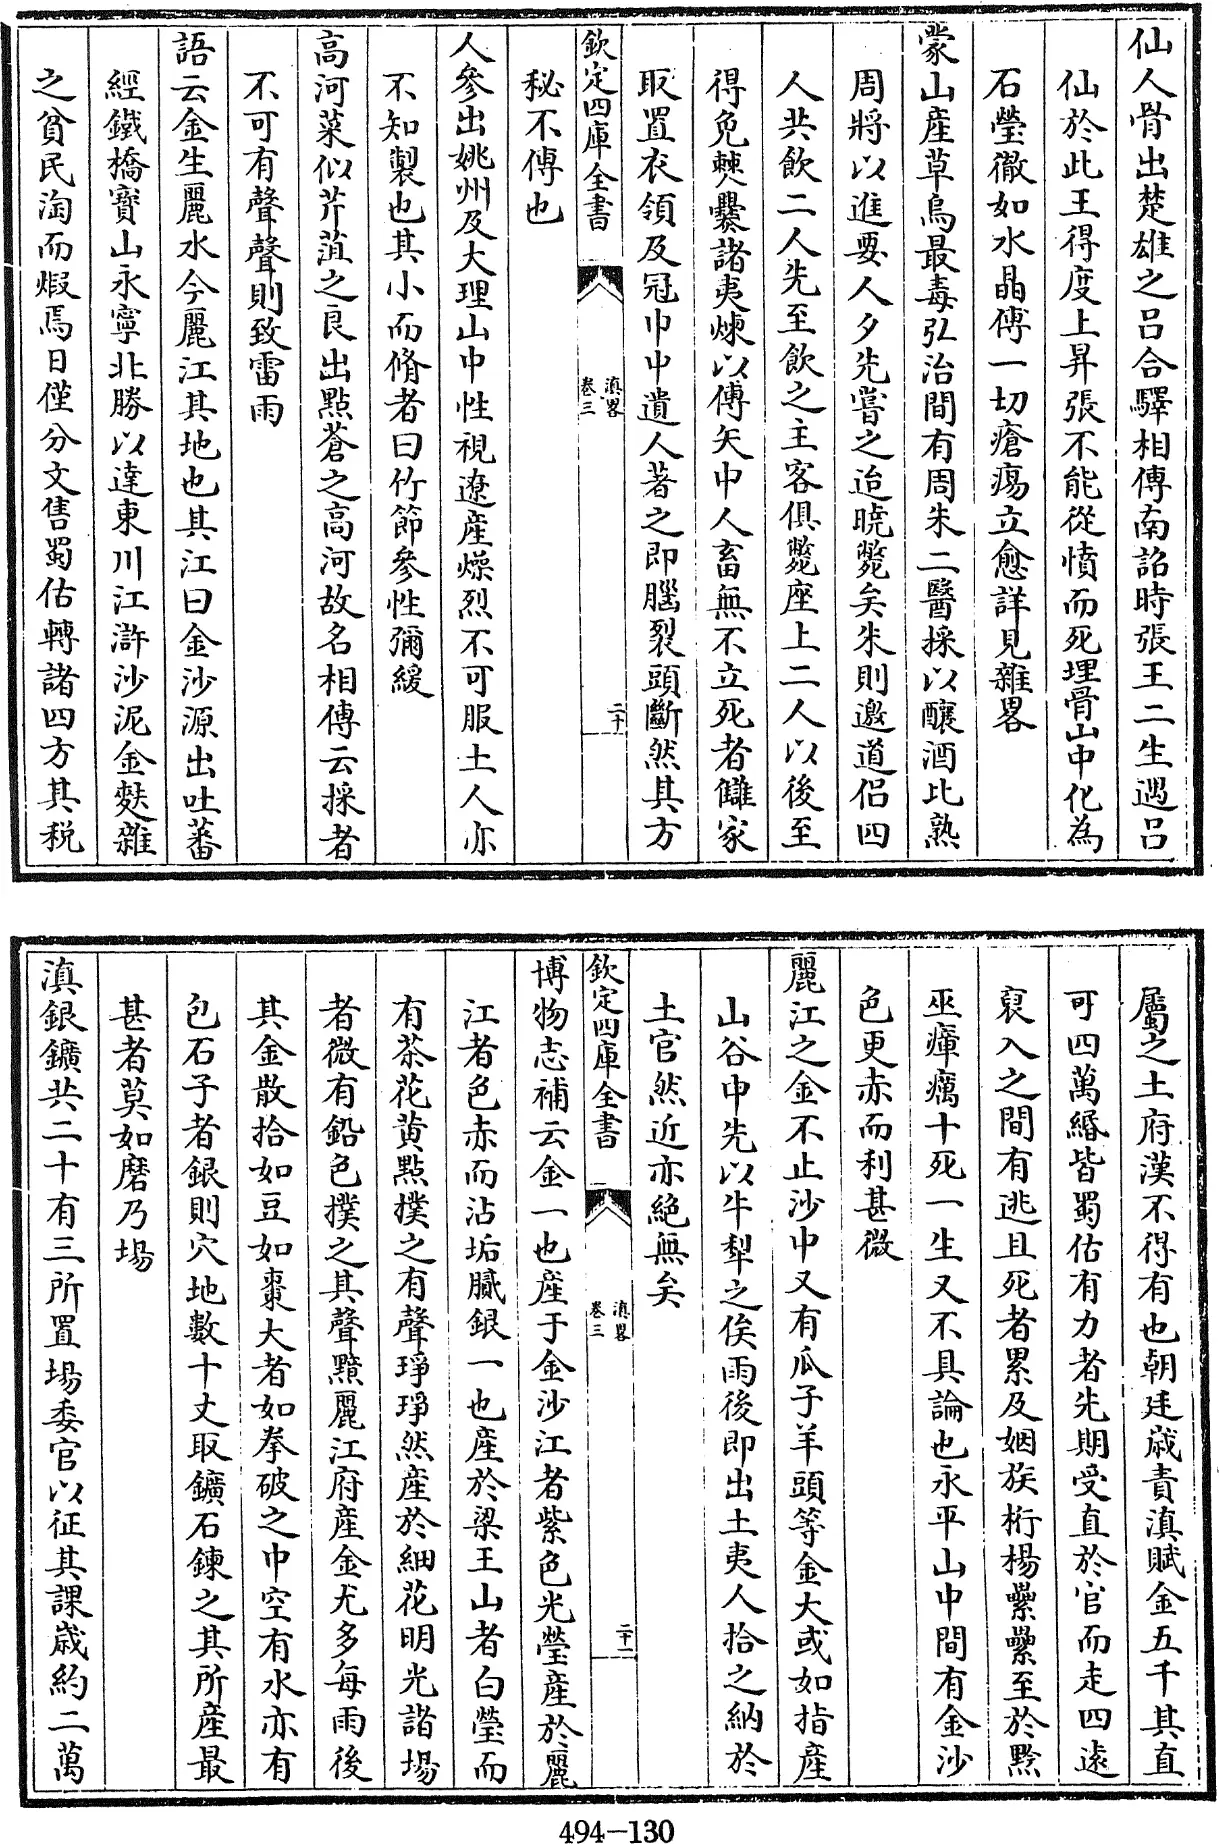 仙人骨出楚雄之吕合驛相傳南詔時張王二生遇吕
仙於此王得度上昇張不能從憤而死埋骨山中化為
石瑩徹如水晶傅一切瘡瘍立愈詳見雜畧
蒙山産草烏最毒弘治間有周朱二醫採以釀酒比熟
周將以進要人夕先嘗之迨曉斃矣朱則邀道侣四
人共飲二人先至飲之主客俱斃座上二人以後至
得免棘人爨諸夷煉以傅矢中人畜無不立死者讎家
取置衣領及冠巾中遺人著之即腦裂頭斷然其方
欽定四庫全書
滇畧
卷三
二十
秘不傳也
人參出姚州及大理山中性視遼産燥烈不可服土人亦
不知製也其小而脩者曰竹節參性彌緩
高河菜似芹菹之良出點蒼之高河故名相傳云採者
不可有聲聲則致雷雨
語云金生麗水今麗江其地也其江曰金沙源出吐蕃
經鐵橋寶山永寧北勝以達東川江滸沙泥金麩雜
之貧民淘而煆焉日僅分文售蜀估轉諸四方其税
屬之土府漢不得有也朝廷歲責滇賦金五千其直
可四萬緡皆蜀估有力者先期受直於官而走四遠
裒入之間有逃且死者累及姻族桁楊纍纍至於黔
巫瘴癘十死一生又不具論也永平山中間有金沙
色更赤而利甚微
麗江之金不止沙中又有瓜子羊頭等金大或如指産
山谷中先以牛犁之俟雨後即出土夷人拾之納於
土官然近亦絶無矣
欽定四庫全書
滇畧
卷三
二十一
博物志補云金一也産于金沙江者紫色光瑩産於麗
江者色赤而沾垢膩銀一也産於梁王山者白瑩而
有茶花黄點撲之有聲琤琤然産於細花明光諸場
者微有鉛色撲之其聲黯麗江府産金尤多每雨後
其金散拾如豆如棗大者如拳破之中空有水亦有
包石子者銀則穴地數十丈取鑛石鍊之其所産最
甚者莫如磨乃場
滇銀鑛共二十有三所置場委官以征其課歲約二萬
494-130